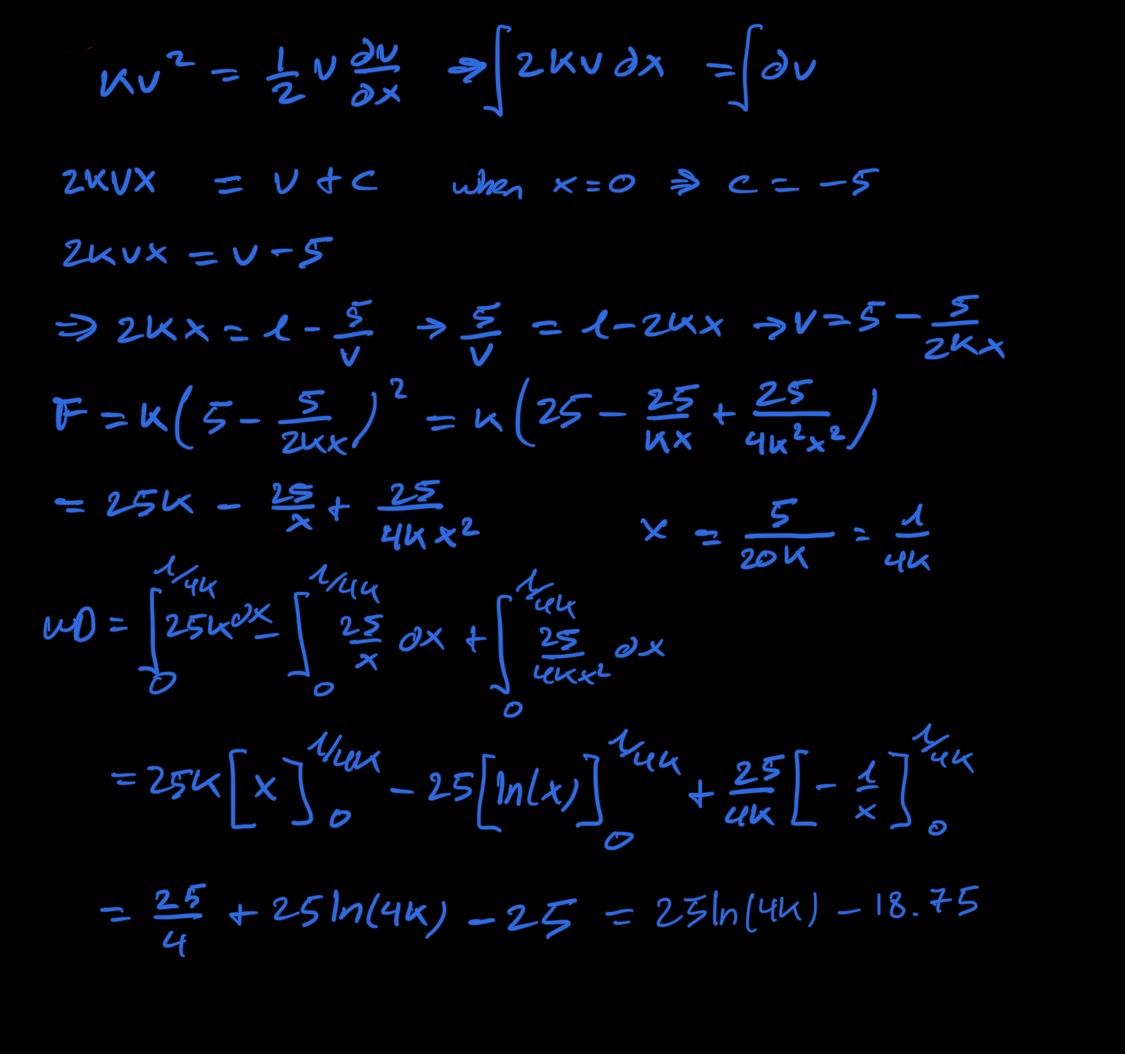 kv² = 1/2 v ∂v/∂x ⇒ ∫2kv∂x = ∫∂v
2kvx = v + c when x=0 ⇒ c = -5
2kvx = v - 5
⇒ 2kx = 1 - 5/v → 5/v = 1 - 2kx → v = 5 - 5/2kx
F = k(5 - 5/2kx)² = k(25 - 25/kx + 25/4k²x²)
= 25k - 25/x + 25/4kx² x = 5/20k = 1/4k
WD = ∫₀^1/4k 25k∂x - ∫₀^1/4k 25/x ∂x + ∫₀^1/4k 25/4kx² ∂x
= 25k[x]₀^1/4k - 25[ln(x)]₀^1/4k + 25/4k[-1/x]₀^1/4k
= 25/4 + 25ln(4k) - 25 = 25ln(4k) - 18.75